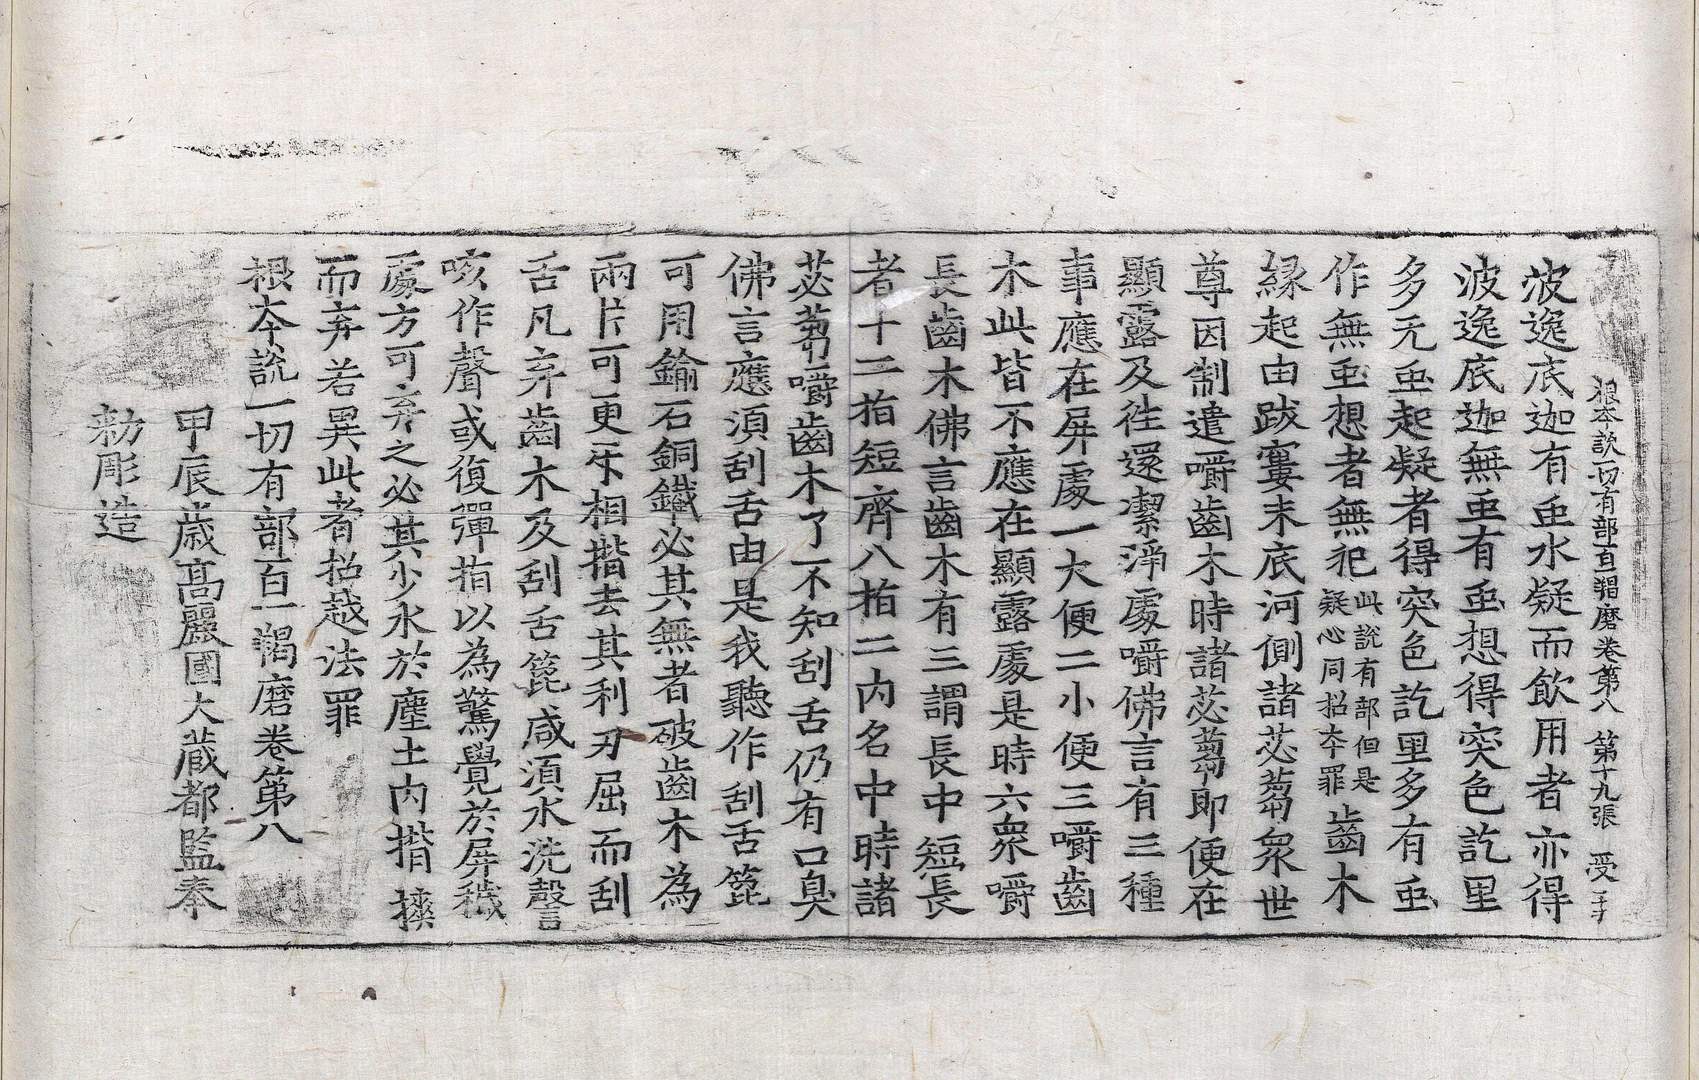 根本說一切有部百一羯磨卷第八 第十九張 受
波逸底迦有虫水疑而飲用者亦得
波逸底迦無虫有虫想得突色訖里
多无虫起疑者得突色訖里多有虫
作無虫想者無犯此說有部但是疑心同招本罪齒木
縁起由跋寠末底河側諸苾蒭衆世
尊因制遣嚼齒木時諸苾蒭即便在
顯露及往還潔淨處嚼佛言有三種
事應在屏處一大便二小便三嚼齒
木此皆不應在顯露處是時六衆嚼
長齒木佛言齒木有三謂長中短長
者十二指短齊八指二内名中時諸
苾蒭嚼齒木了不知刮舌仍有口臭
佛言應湏刮舌由是我聽作刮舌箆
可用鍮石銅鐵必其無者破齒木為
兩片可更牙相揩去其利刃屈而刮
舌凡弃齒木及刮舌箆咸湏水洗謦
咳作聲或復彈指以為驚覺於屏穢
處方可弃之必其少水於塵土内揩摖
而弃若異此者招越法罪
根本說一切有部百一羯磨卷第八
甲辰歳高麗國大蔵都監奉
勅彫造